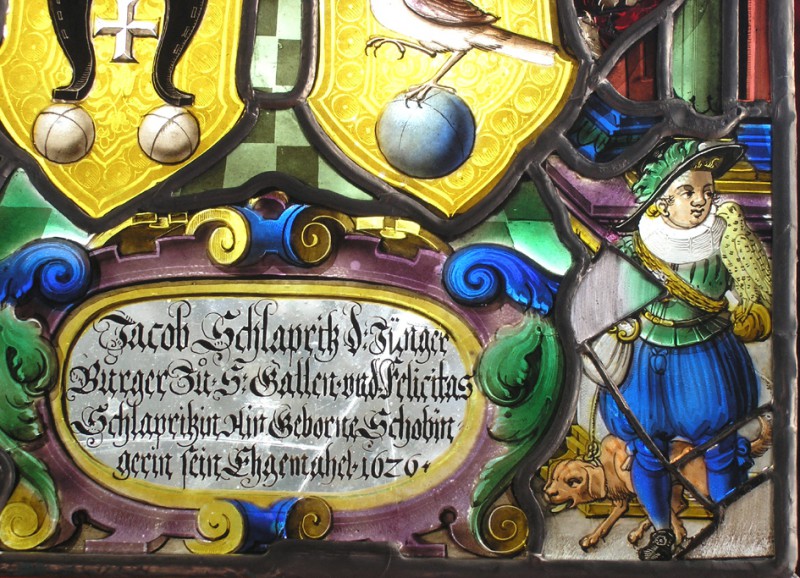 Jacob Schlapritz d: Jünger
Burger Zů: S: Gallen und Felicitas
Schlapritzin Ain Geborne Schobin
gerin sein Ehgemahel · 1626 ·